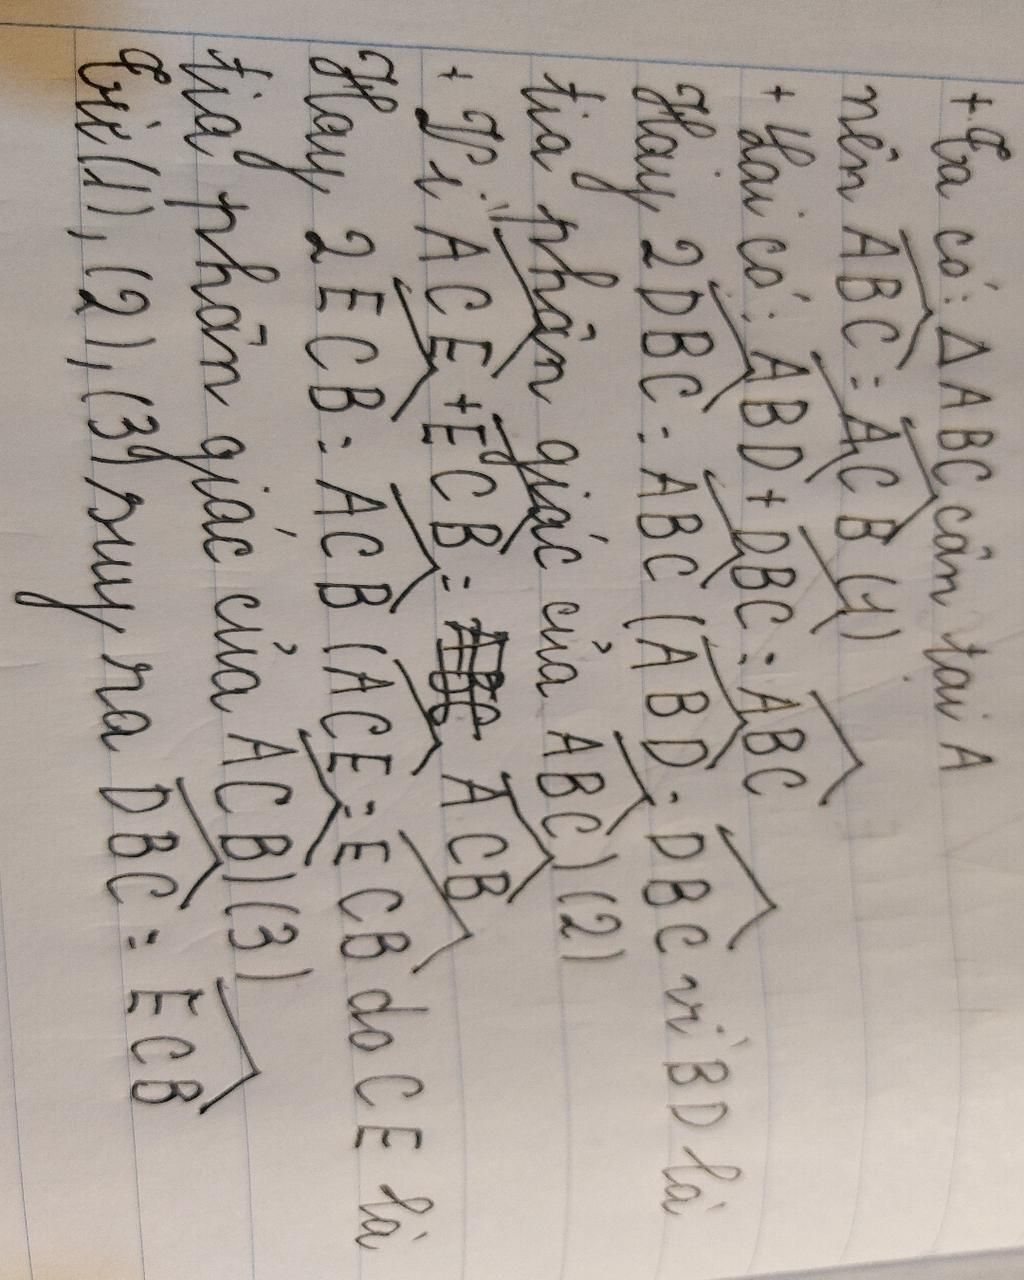 + Ta có: Δ ABC cân tại A
nên ABC = ACB (1)
+ Lại có: ABD + DBC = ABC
Hay 2DBC = ABC (ABD = DBC vì BD là
tia phân giác của ABC) (2)
+ Vì ACE + ECB = ACB
Hay 2ECB = ACB (ACE = ECB do CE là
tia phân giác của ACB) (3)
Từ (1), (2), (3) suy ra DBC = ECB